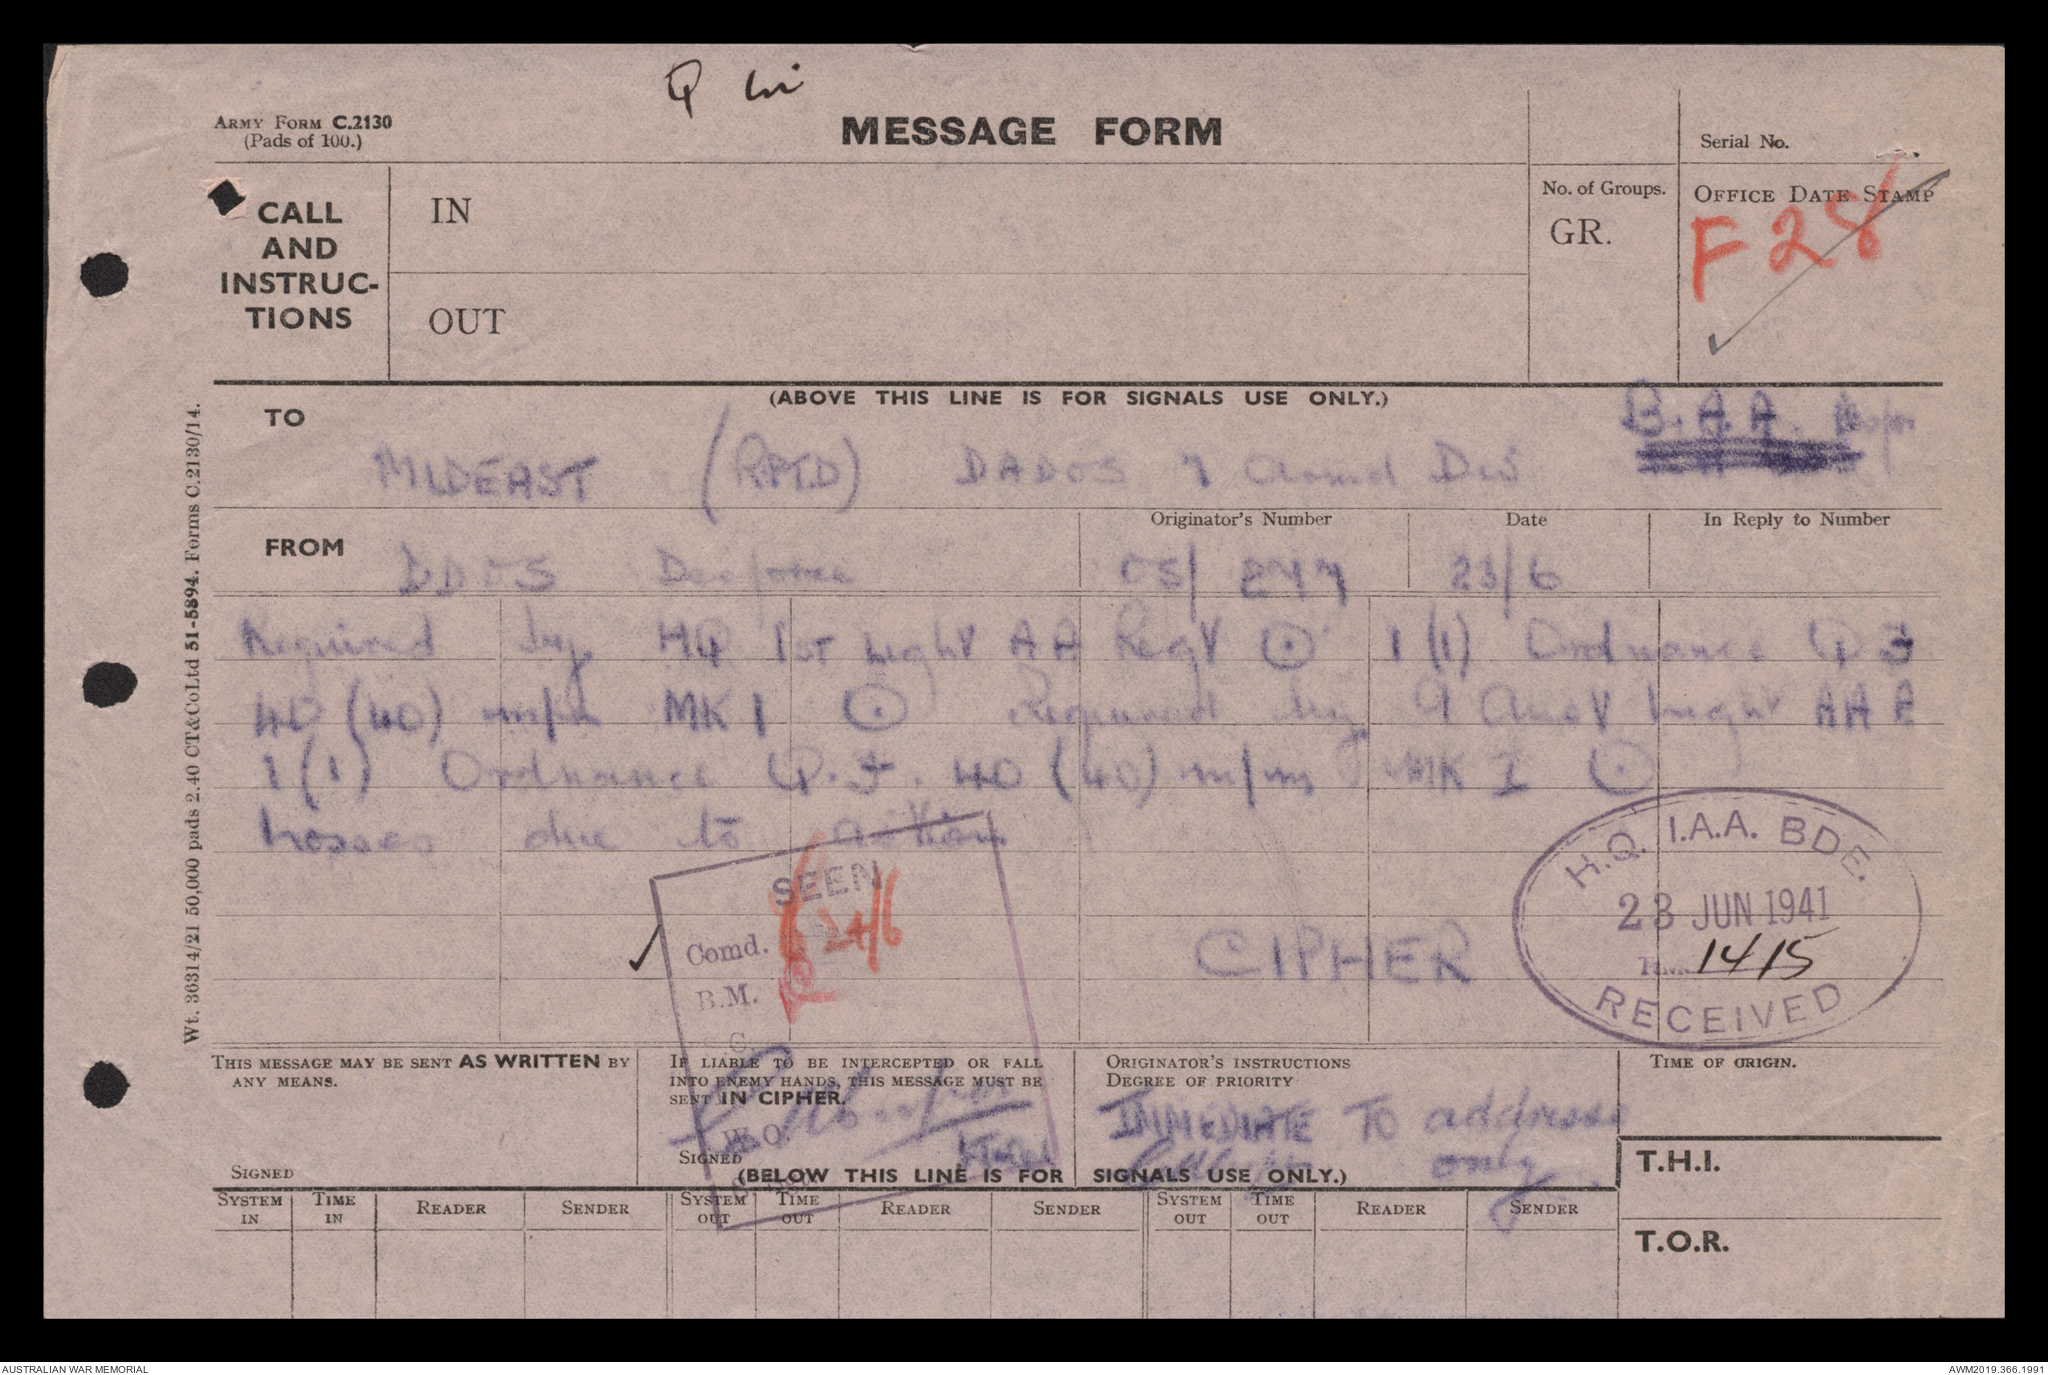 Q
ARMY FORM C.2130
(Pads of 100.)
MESSAGE FORM
Serial No.
CALL
AND
INSTRUC-
TIONS
IN
OUT
No. of Groups.
GR.
OFFICE DATE STAMP
F28
(ABOVE THIS LINE IS FOR SIGNALS USE ONLY.)
TO
B.A.A.
MIDEAST (RPTD) DADOS 7 Armd Div
FROM
Originator's Number
Date
In Reply to Number
DDOS Desforce
OS/ 277
23/6
Required by HQ 1ST Light AA Regt ⊙ 1 (1) Ordnance Q F
40 (40) m/m MK I ⊙ Required by 9 Aust Light AA R
1 (1) Ordnance Q.F. 40 (40) m/m MK I ⊙
Losses due to action
SEEN
Comd. 24/6
B.M.
C.
W.O.
CIPHER
H.Q. 1.A.A. BDE.
23 JUN 1941
TIME 1415
RECEIVED
Wt. 36314/21 50,000 pads 2.40 CT&CoLtd 51-5894. Forms C.2130/14.
THIS MESSAGE MAY BE SENT AS WRITTEN BY
ANY MEANS.
SIGNED
IF LIABLE TO BE INTERCEPTED OR FALL
INTO ENEMY HANDS, THIS MESSAGE MUST BE
SENT IN CIPHER.
SIGNED
ORIGINATOR'S INSTRUCTIONS
DEGREE OF PRIORITY
IMMEDIATE TO address
only
TIME OF ORIGIN.
T.H.I.
T.O.R.
(BELOW THIS LINE IS FOR SIGNALS USE ONLY.)
SYSTEM IN
TIME IN
READER
SENDER
SYSTEM OUT
TIME OUT
READER
SENDER
SYSTEM OUT
TIME OUT
READER
SENDER
AUSTRALIAN WAR MEMORIAL
AWM2019.366.1991